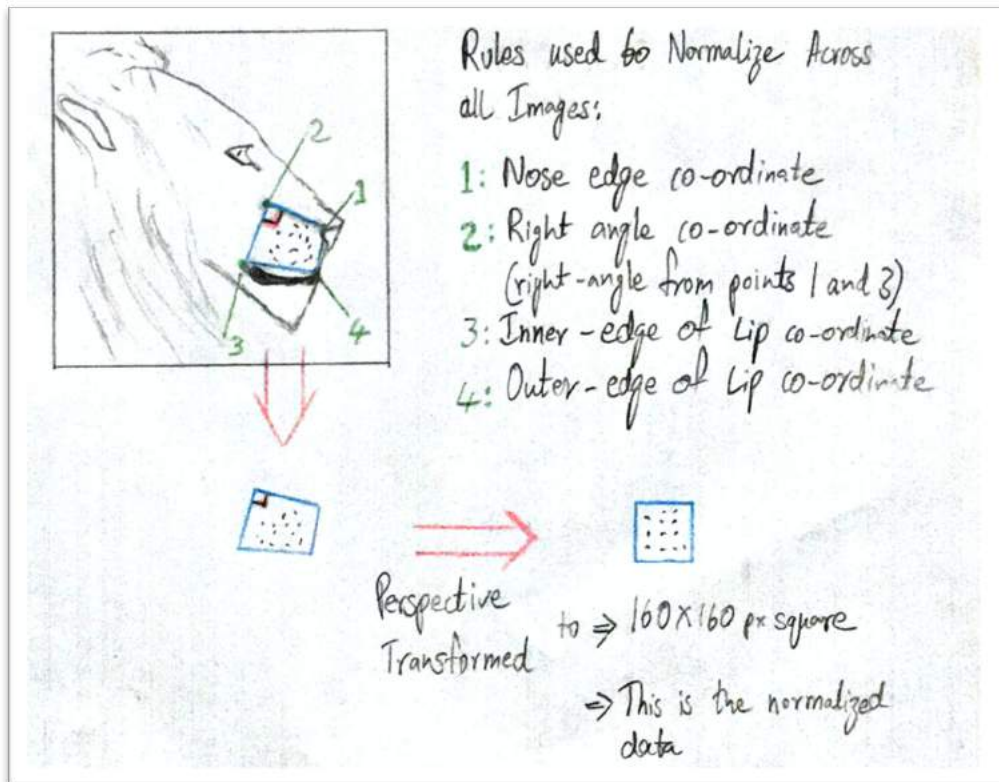 Rules used to Normalize Across
all Images:
1: Nose edge co-ordinate
2: Right angle co-ordinate
(right-angle from points 1 and 3)
3: Inner-edge of Lip co-ordinate
4: Outer-edge of Lip co-ordinate
2
1
3
4
Perspective
Transformed
to ⇒ 160X160 px square
⇒ This is the normalized
data